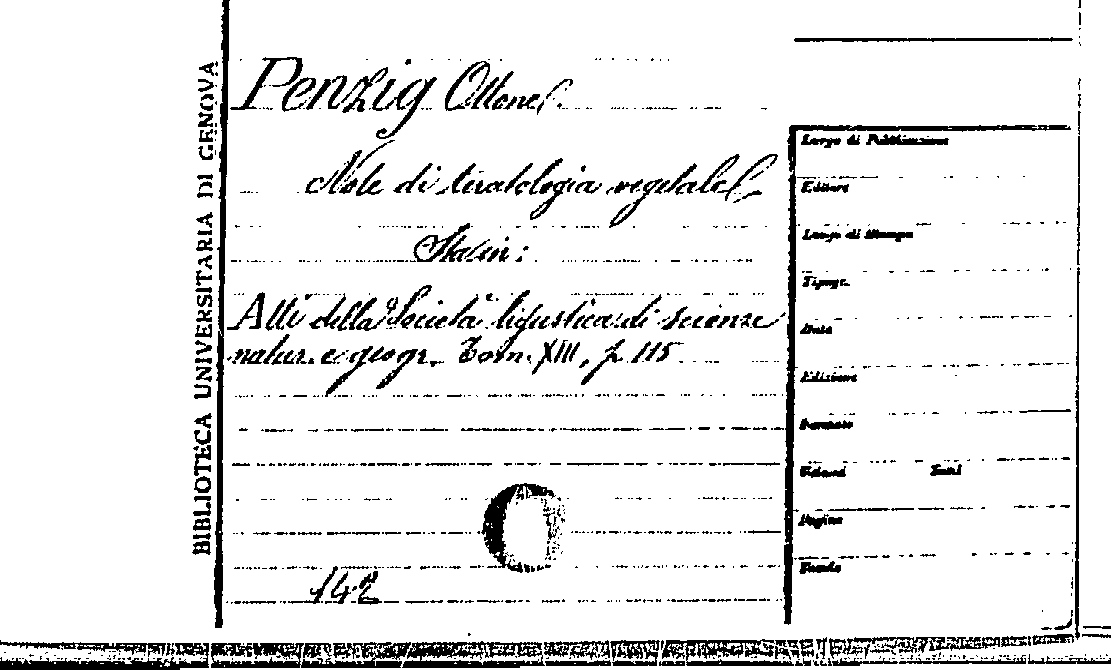 BIBLIOTECA UNIVERSITARIA DI GENOVA
Penzig Ottone
Note di teratologia vegetale
Sta in:
Atti della Società ligustica di scienze
natur. e geogr. Tom. XIII, p. 115
142
Luogo di Pubblicazione
Editore
Luogo di Stampa
Tipogr.
Data
Edizione
Formato
Volumi Tomi
Pagine
Fondo